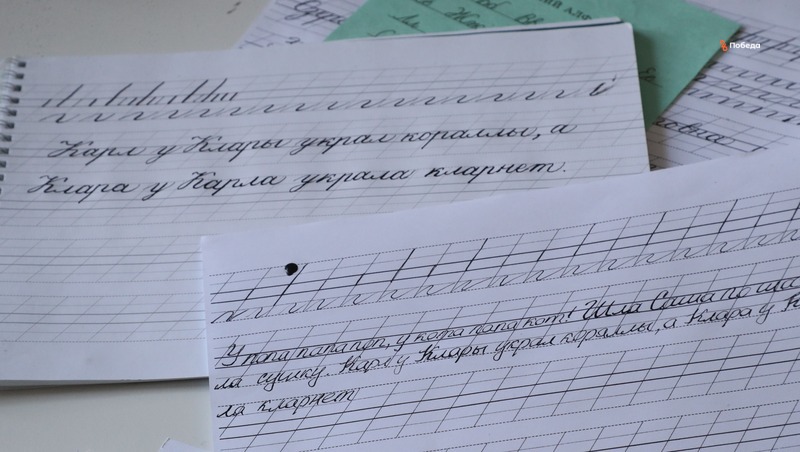 Победа
Карл у Клары украл кораллы, а
Клара у Карла украла кларнет.
У попа папа поп, у кота папа кот! Шла Саша по
ла сушку. Карл у Клары украл кораллы, а Клара у
ла кларнет